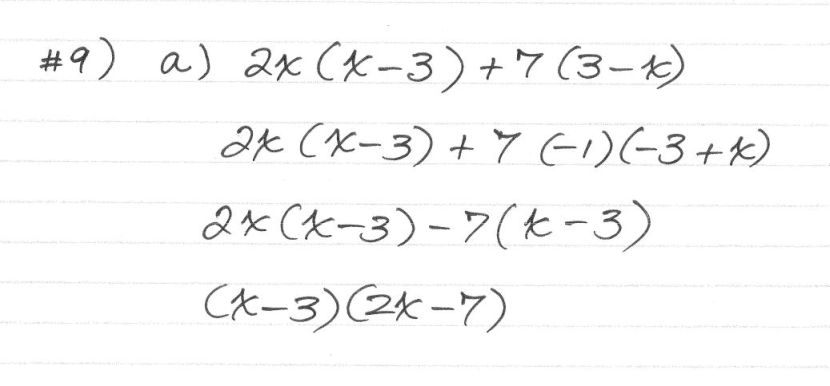 #9) a) 2x(x-3)+7(3-x)
2x(x-3)+7(-1)(-3+x)
2x(x-3)-7(x-3)
(x-3)(2x-7)